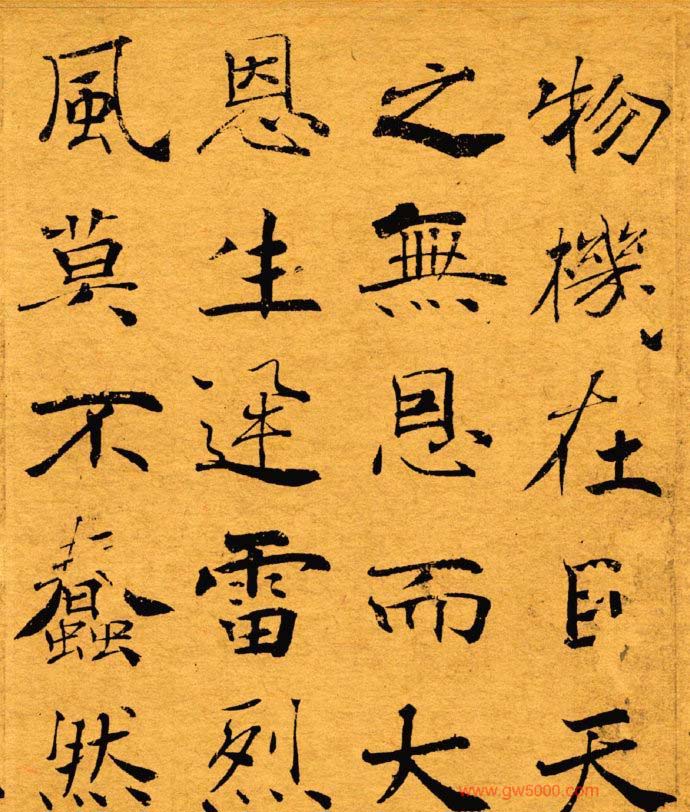 物機在目天
之無恩而大
恩生迅雷烈
風莫不蠢然
www.gw5000.com